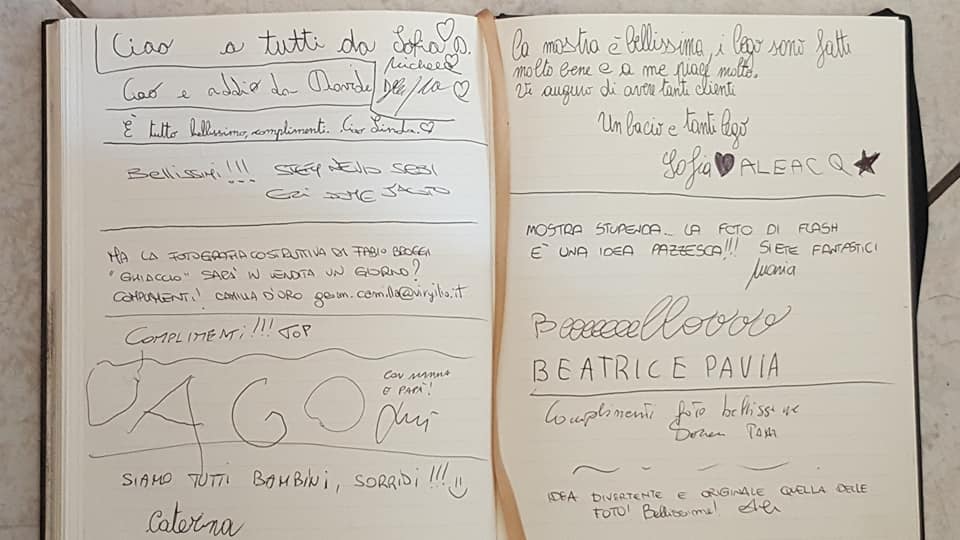 Ciao a tutti da Sofia D.
Michele
Ciao e addio da Davide
È tutto bellissimo, complimenti. Ciao Linda.
Bellissimi!!!
MA LA FOTOGRAFIA COSTRUTIVA DI FABIO BROGGI
"GHIACCIO" SARÀ IN VENDITA UN GIORNO?
COMPLIMENTI! CAMILLA D'ORO geom.camilla@virgilio.it
COMPLIMENTI!!! TOP
CON MAMMA
E PAPÀ!
SIAMO TUTTI BAMBINI, SORRIDI!!!
Caterina
La mostra è bellissima, i lego sono fatti
molto bene e a me piace molto.
Vi auguro di avere tanti clienti
Un bacio e tanti lego
Sofia ALEACQ
MOSTRA STUPENDA... LA FOTO DI FLASH
E' UNA IDEA PAZZESCA!!! SIETE FANTASTICI
BEATRICE PAVIA
Complimenti foto
IDEA DIVERTENTE E ORIGINALE QUELLA DELLE
FOTO! Bellissime!